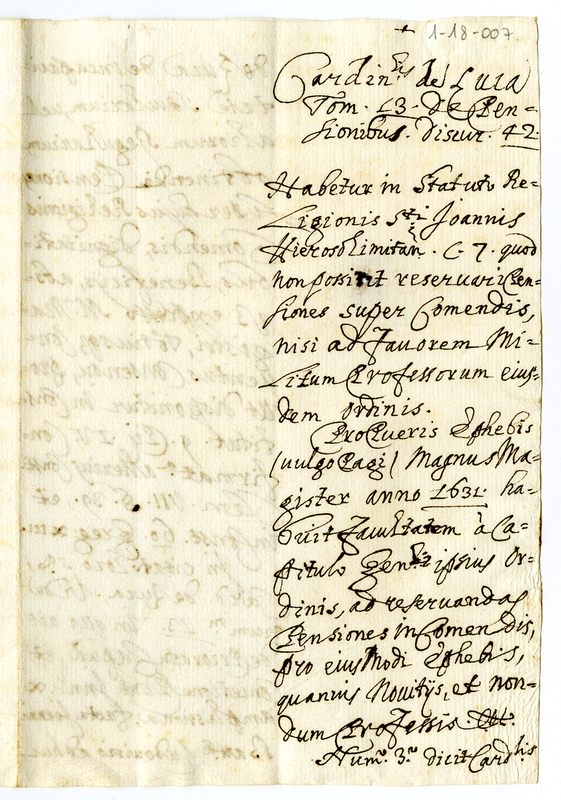 1-18-007.
Cardin.lis de Luca
Tom. 13. de Pen=
sionibus. discur. 42.
Habetur in Statuto Re=
Ligionis S.ti Joannis
Hierosolimitan. C. 7. quod
non possint reservari Pen=
siones super Comendis,
nisi ad favorem Mi=
Litum Professorum eius=
dem ordinis.
Pro Pueris Ephebis
(vulgo Pagi) Magnus Ma=
gister anno 1631. ha=
buit facultatem à Ca=
pitulo Gen.li ipsius Or=
dinis, ad reservandas
Pensiones in Comendis,
pro eiusmodi Ephebis,
quamvis Novitijs, et non=
dum Professis
Num.o 3.o dicit Card.lis